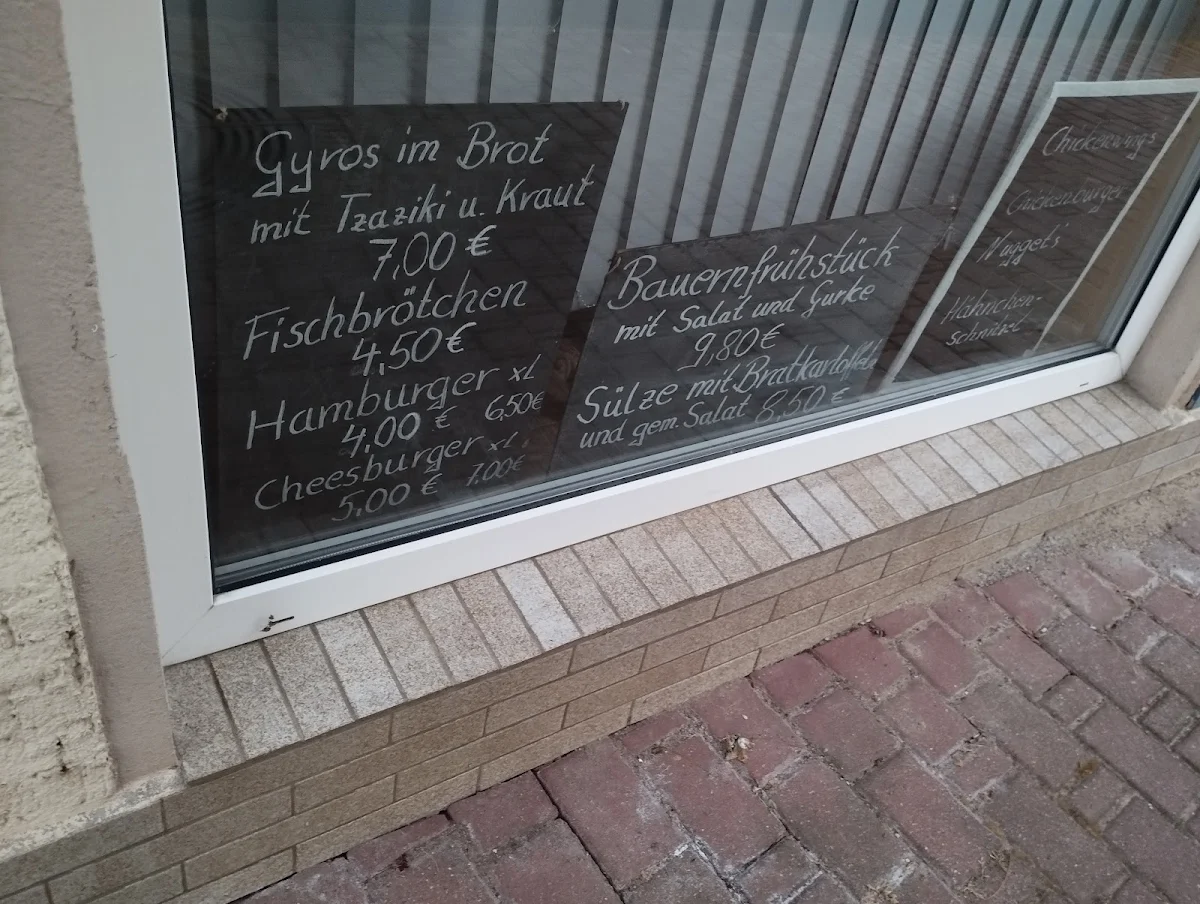 Gyros im Brot
mit Tzaziki u. Kraut
7,00 €
Fischbrötchen
4,50 €
Hamburger xL
4,00 € 6,50€
Cheesburger xL
5,00 € 7,00€
Bauernfrühstück
mit Salat und Gurke
9,80 €
Sülze mit Bratkartoffeln
und gem. Salat 8,50 €
Chickenwings
Chickenburger
Nugget's
Hähnchen-
schnitzel